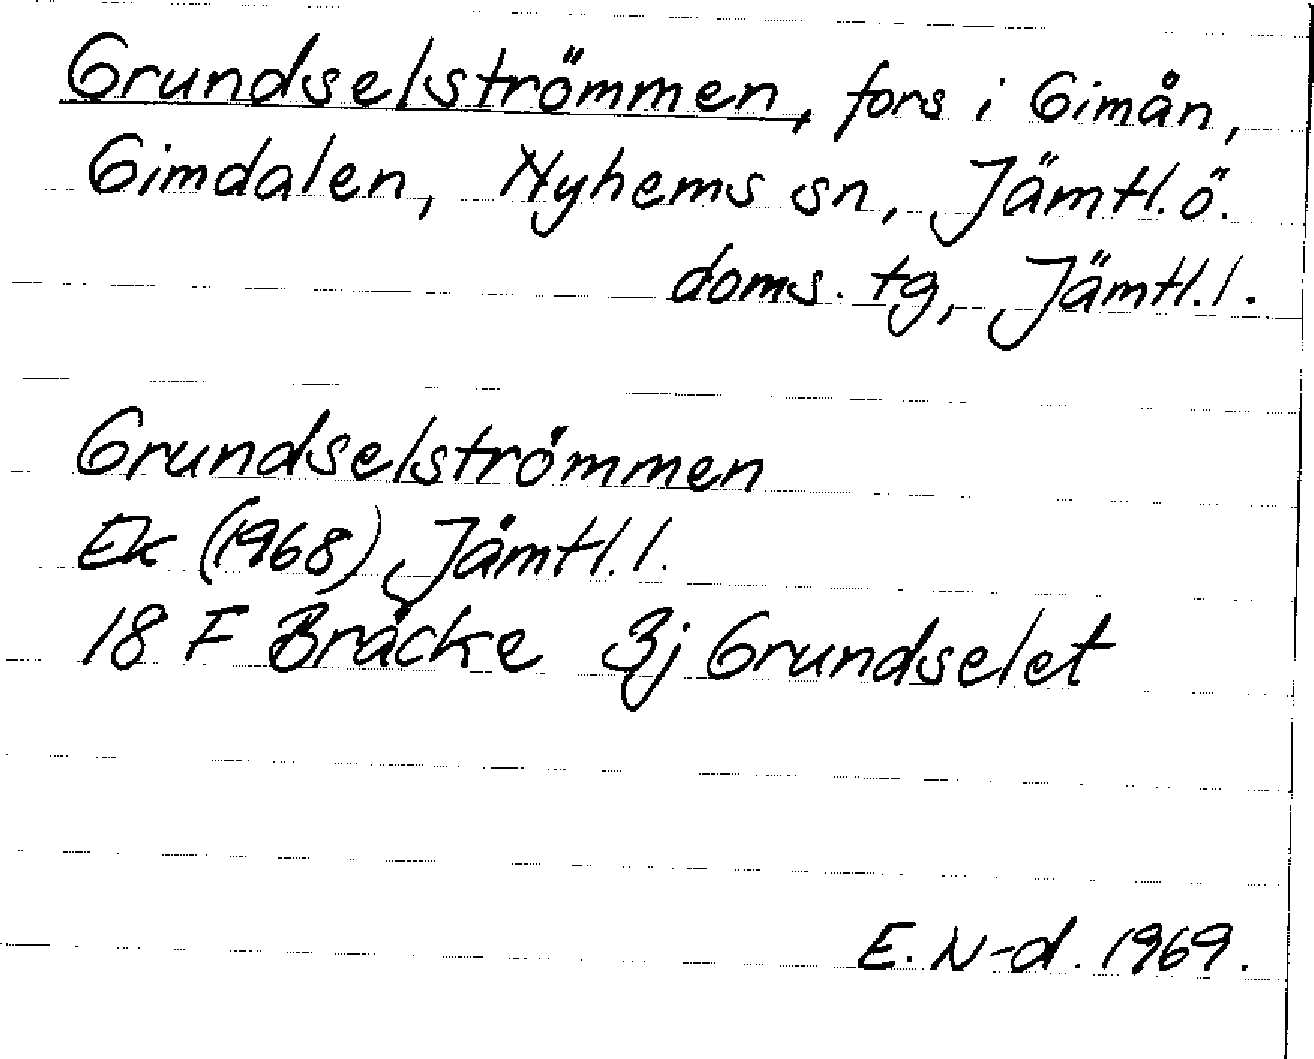 Grundselströmmen, fors i Gimån,
Gimdalen, Nyhems sn, Jämtl. ö.
doms. tg, Jämtl. l.
Grundselströmmen
Ek (1968) Jämtl. l.
18 F Bräcke 3j Grundselet
E. N-d. 1969.